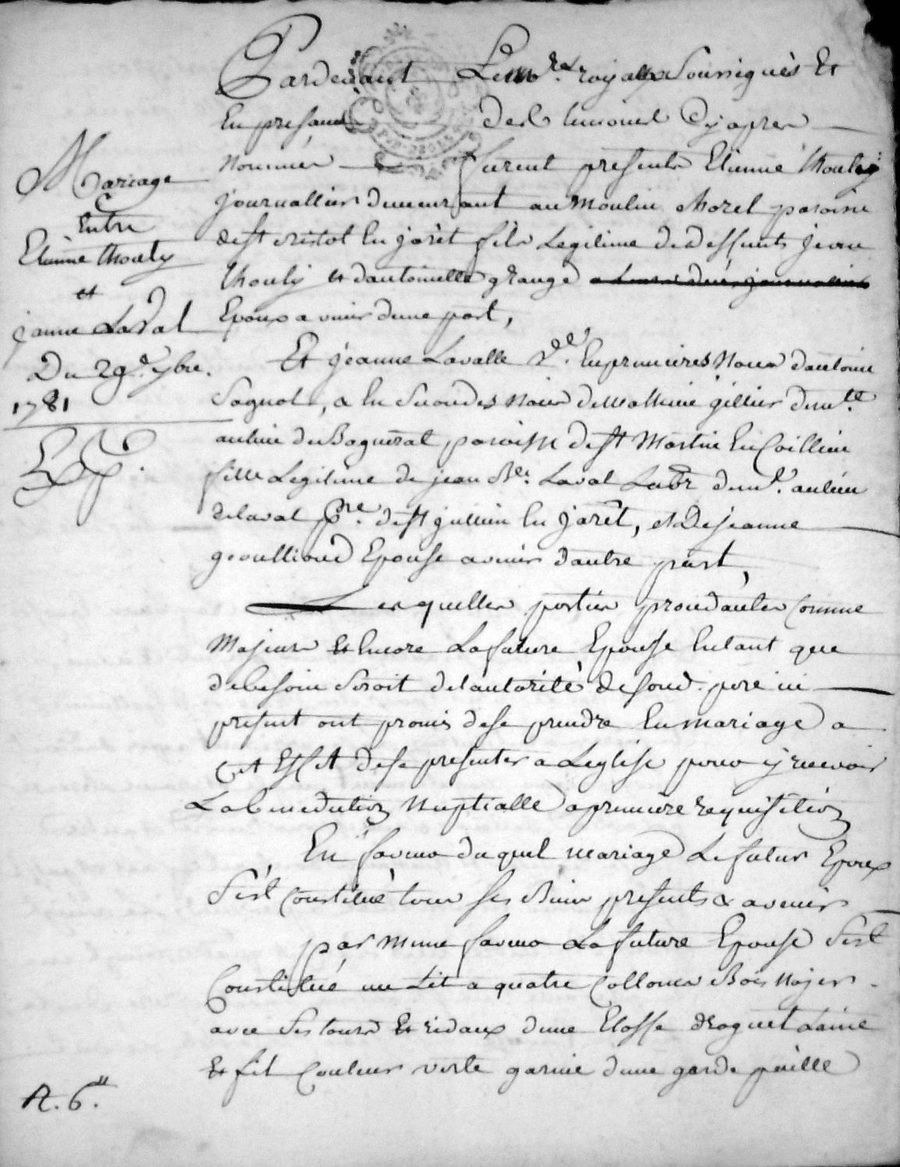 Pardevant Le no.re royal Soussignés Et
En presance des temoins Cy apres
nommés furent presents Etienne Thouly
journallier demeurant au Moulin Morel paroisse
de st cristol En jarêt fils Legitime de deffunts jean
Thouly et dantoinette grange
Epoux a venir dune part,
Et jeanne Lavalle v.ve En premieres Noces dantoine
Sagnol, & En Secondes Noces de Mathieu gillier dem.te
au lieu du Bagnerat paroisse de st Martin En Coillieu
fille Legitime de jean B.te Laval Labr dem.t au lieu
de laval p.sse de st jullien En jarêt, et de jeanne
Epouse a venir dautre part,
Les quelles parties procedantes Comme
Majeurs Et Encore La future Epouse En tant que
de besoin Seroit de l'autorité de son d. pere ici
present ont promis de se prendre En mariage a
Cet Effet de se presenter a L'eglise pour y recevoir
La benediction Nuptialle a premiere requisition
En faveur duquel mariage Le futur Epoux
S'est Constitué tous ses Biens presents & a venir
par Meme faveur La future Epouse S'est
Constituée un Lit a quatre Collones Bois Noyer
avec Ses tours Et ridaux dune Etoffe droguet Laine
Et fil Couleur verte garnie dune garde paille
Mariage
Entre
Etienne Thouly
et
janne Laval
Du 29.e 9bre.
1781
R. 6.tt